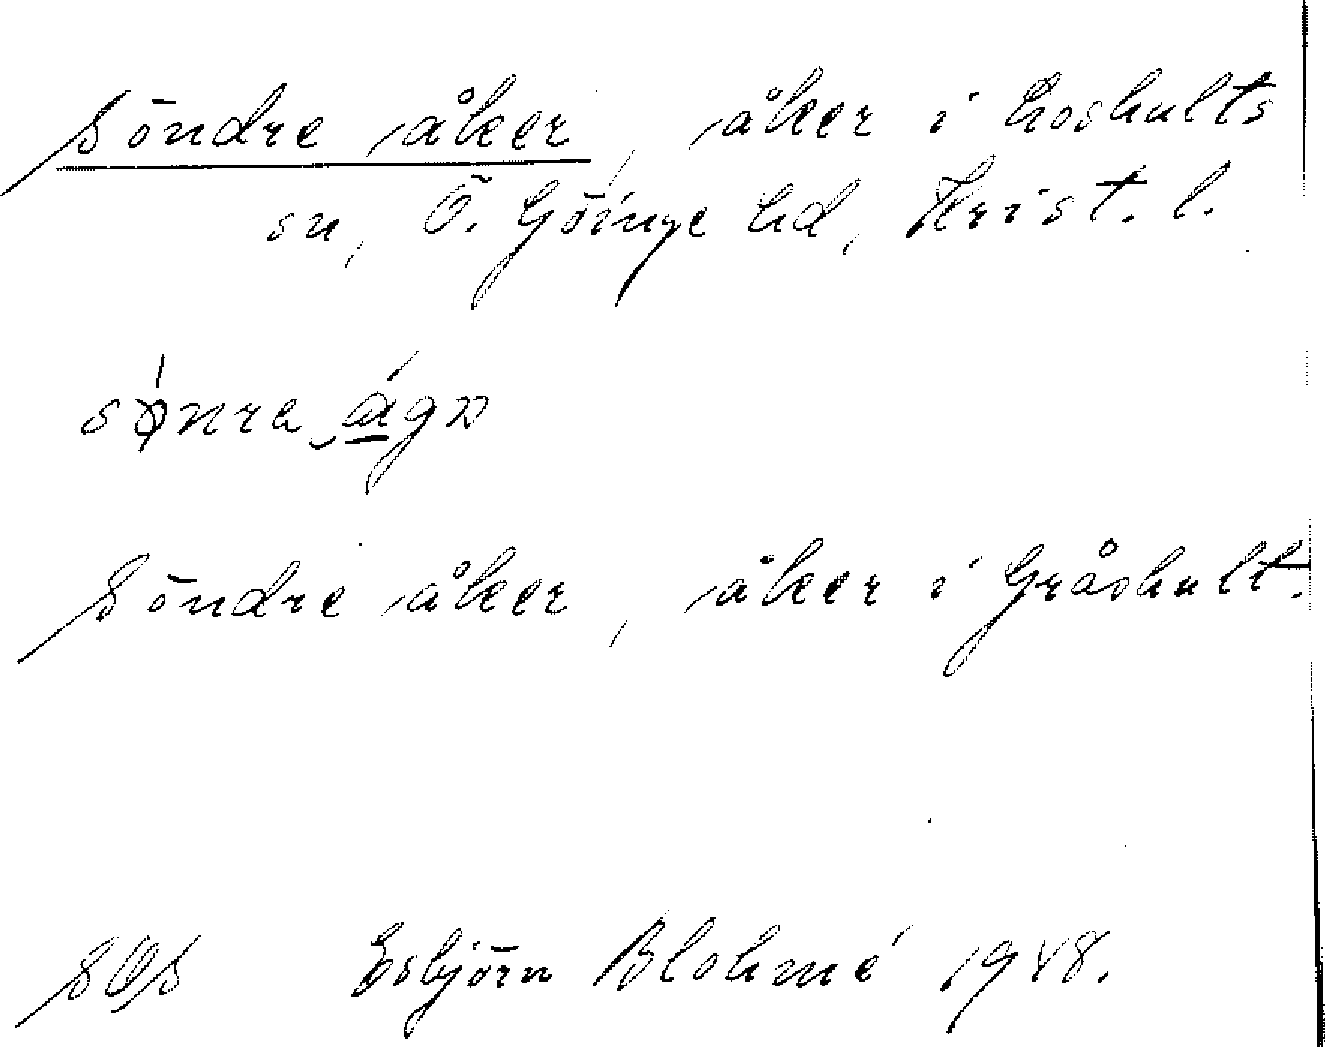 Söndre åker, åker i Loshults
sn, Ö. Göinge hd, Krist. l.
Söndre åker, åker i Gråshult.
SOS Esbjörn Blohmé 1948.